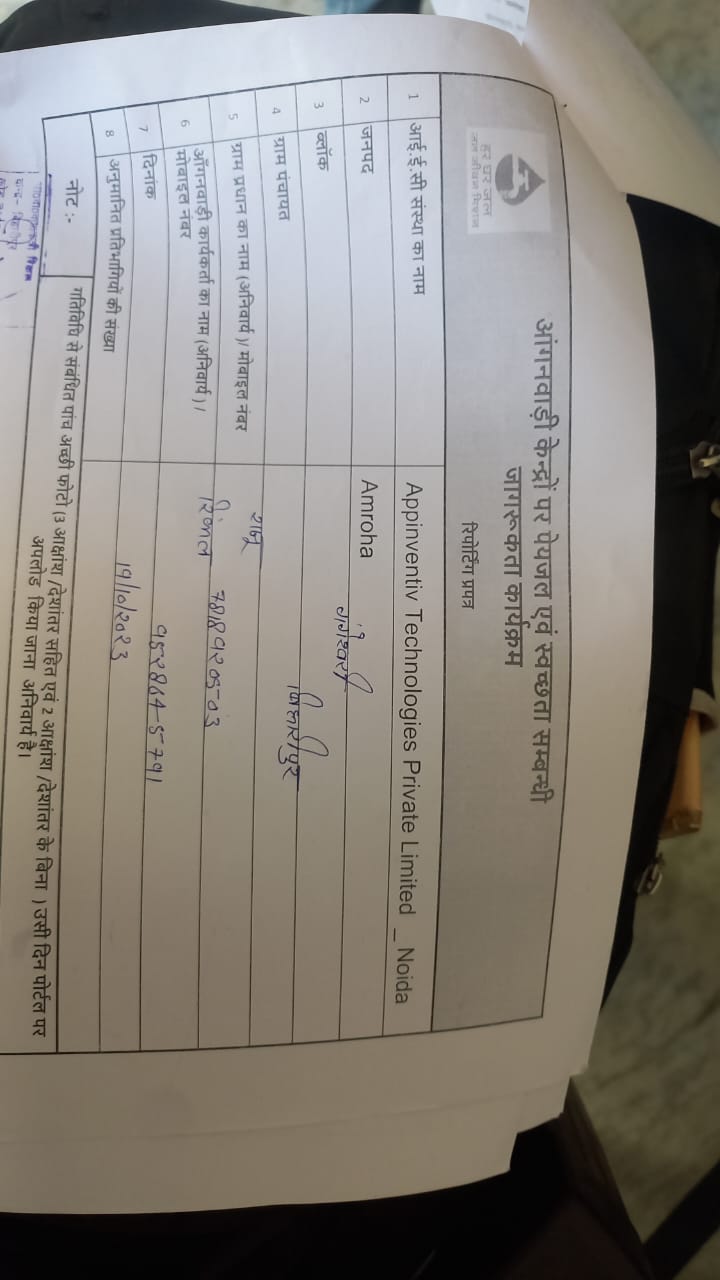 हर घर जल
जल जीवन मिशन
आंगनवाड़ी केन्द्रों पर पेयजल एवं स्वच्छता सम्बन्धी
जागरूकता कार्यक्रम
रिपोर्टिंग प्रपत्र
1 आई.ई.सी संस्था का नाम Appinventiv Technologies Private Limited _ Noida
2 जनपद Amroha
3 ब्लॉक गंगेश्वरी
4 ग्राम पंचायत
5 ग्राम प्रधान का नाम (अनिवार्य )/ मोबाइल नंबर
6 ऑगनवाड़ी कार्यकर्ता का नाम (अनिवार्य ) /
मोबाइल नंबर
7 दिनांक
8 अनुमानित प्रतिभागियों की संख्या
19/10/2023
नोट :-
गतिविधि से संबंधित पांच अच्छी फोटो (3 आक्षांश /देशांतर सहित एवं 2 आक्षांश /देशांतर के बिना ) उसी दिन पोर्टल पर
अपलोड किया जाना अनिवार्य है।